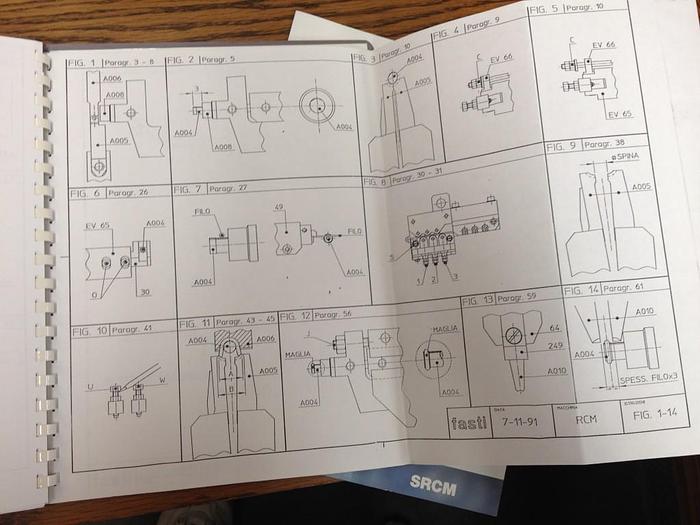 FIG. 1 Paragr. 3 - 8
A006
A008
A005
FIG. 2 Paragr. 5
3
A004
A008
A004
FIG. 3 Paragr. 10
A004
A005
FIG. 4 Paragr. 9
C
EV 66
FIG. 5 Paragr. 10
C
EV 66
EV 65
FIG. 6 Paragr. 26
EV 65
A004
O
30
FIG. 7 Paragr. 27
FILO
49
FILO
A004
A004
FIG. 8 Paragr. 30 - 31
S
1
2
3
FIG. 9 Paragr. 38
ø SPINA
A005
FIG. 10 Paragr. 41
U
W
FIG. 11 Paragr. 43 - 45
A004
A006
A005
A
B
FIG. 12 Paragr. 56
J
MAGLIA
MAGLIA
A004
A004
FIG. 13 Paragr. 59
64
249
A010
FIG. 14 Paragr. 61
A010
A004
SPESS. FILOx3
fasti
DATA
7-11-91
MACCHINA
RCM
FIG. 1-14
SRCM